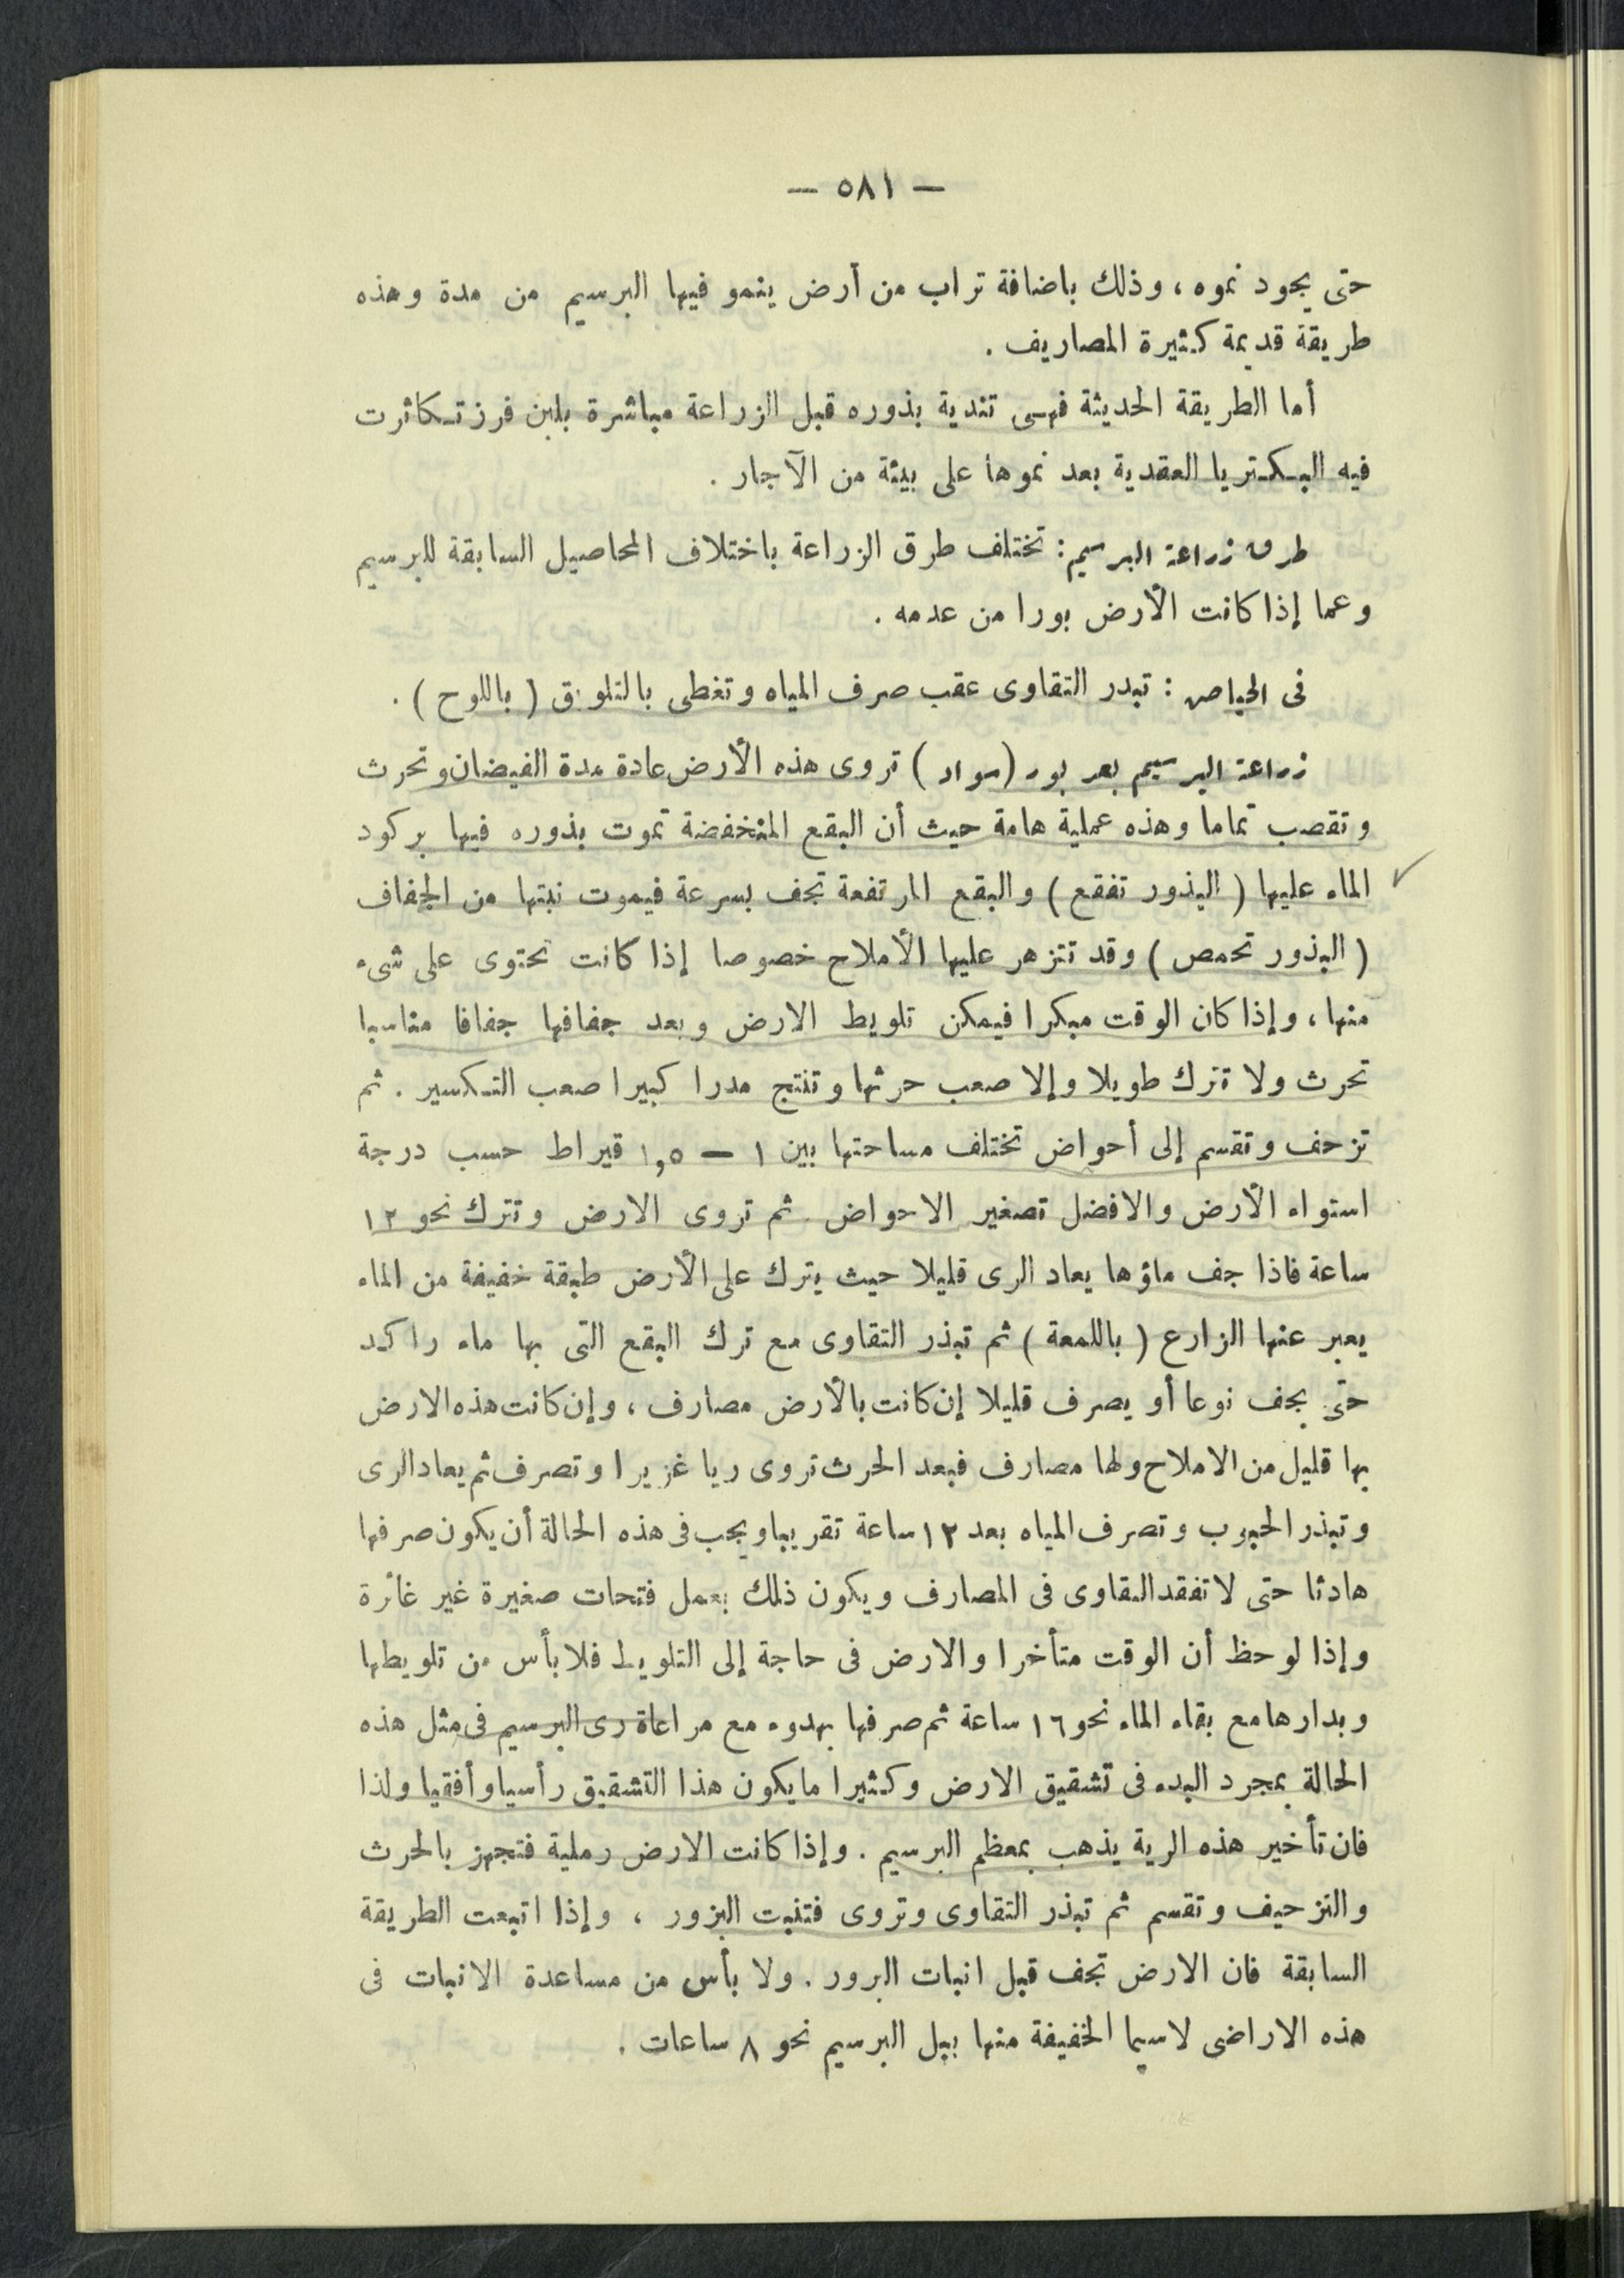 — ٥٨١ —
حتى يجود نموه ، وذلك باضافة تراب من أرض ينمو فيها البرسيم من مدة وهذه
طريقة قديمة كثيرة المصاريف .
أما الطريقة الحديثة فهى تندية بذوره قبل الزراعة مباشرة بلبن فرز تكاثرت
فيه البكتريا العقدية بعد نموها على بيئة من الآجار .
طرق زراعة البرسيم : تختلف طرق الزراعة باختلاف المحاصيل السابقة للبرسيم
وعما إذا كانت الأرض بورا من عدمه .
فى الحياض : تبدر التقاوى عقب صرف المياه وتغطى بالتلوق ( باللوح ) .
زراعة البرسيم بعد بور ( سواد ) تروى هذه الأرض عادة مدة الفيضان وتحرث
وتقصب تماما وهذه عملية هامة حيث أن البقع المنخفضة تموت بذوره فيها بركود
الماء عليها ( البذور تفقع ) والبقع المرتفعة تجف بسرعة فيموت نبتها من الجفاف
( البذور تحمص ) وقد تتزهر عليها الأملاح خصوصا إذا كانت تحتوى على شىء
منها ، وإذا كان الوقت مبكرا فيمكن تلويط الارض وبعد جفافها جفافا مناسبا
تحرث ولا تترك طويلا وإلا صعب حرثها وتنتج مدرا كبيرا صعب التكسير . ثم
تزحف وتقسم إلى أحواض تختلف مساحتها بين ١ — ١٫٥ قيراط حسب درجة
استواء الأرض والافضل تصغير الاحواض . ثم تروى الارض وتترك نحو ١٢
ساعة فاذا جف ماؤها يعاد الرى قليلا حيث يترك على الأرض طبقة خفيفة من الماء
يعبر عنها الزارع ( باللمعة ) ثم تبذر التقاوى مع ترك البقع التى بها ماء راكد
حتى يجف نوعا أو يصرف قليلا إن كانت بالأرض مصارف ، وإن كانت هذه الارض
بها قليل من الاملاح ولها مصارف فبعد الحرث تروى ريا غزيرا وتصرف ثم يعاد الرى
وتبذر الحبوب وتصرف المياه بعد ١٢ ساعة تقريبا ويجب فى هذه الحالة أن يكون صرفها
هادئا حتى لا تفقد التقاوى فى المصارف ويكون ذلك بعمل فتحات صغيرة غير غائرة
وإذا لوحظ أن الوقت متأخرا والارض فى حاجة إلى التلويط فلا بأس من تلويطها
وبدارها مع بقاء الماء نحو ١٦ ساعة ثم صرفها بهدوء مع مراعاة رى البرسيم فى مثل هذه
الحالة بمجرد البدء فى تشقيق الارض وكثيرا ما يكون هذا التشقيق رأسيا وأفقيا ولذا
فان تأخير هذه الرية يذهب بمعظم البرسيم . وإذا كانت الارض رملية فتجهز بالحرث
والتزحيف وتقسم ثم تبذر التقاوى وتروى فتنبت البزور ، وإذا اتبعت الطريقة
السابقة فان الارض تجف قبل انبات البرور . ولا بأس من مساعدة الانبات فى
هذه الاراضى لاسيما الخفيفة منها ببل البرسيم نحو ٨ ساعات .